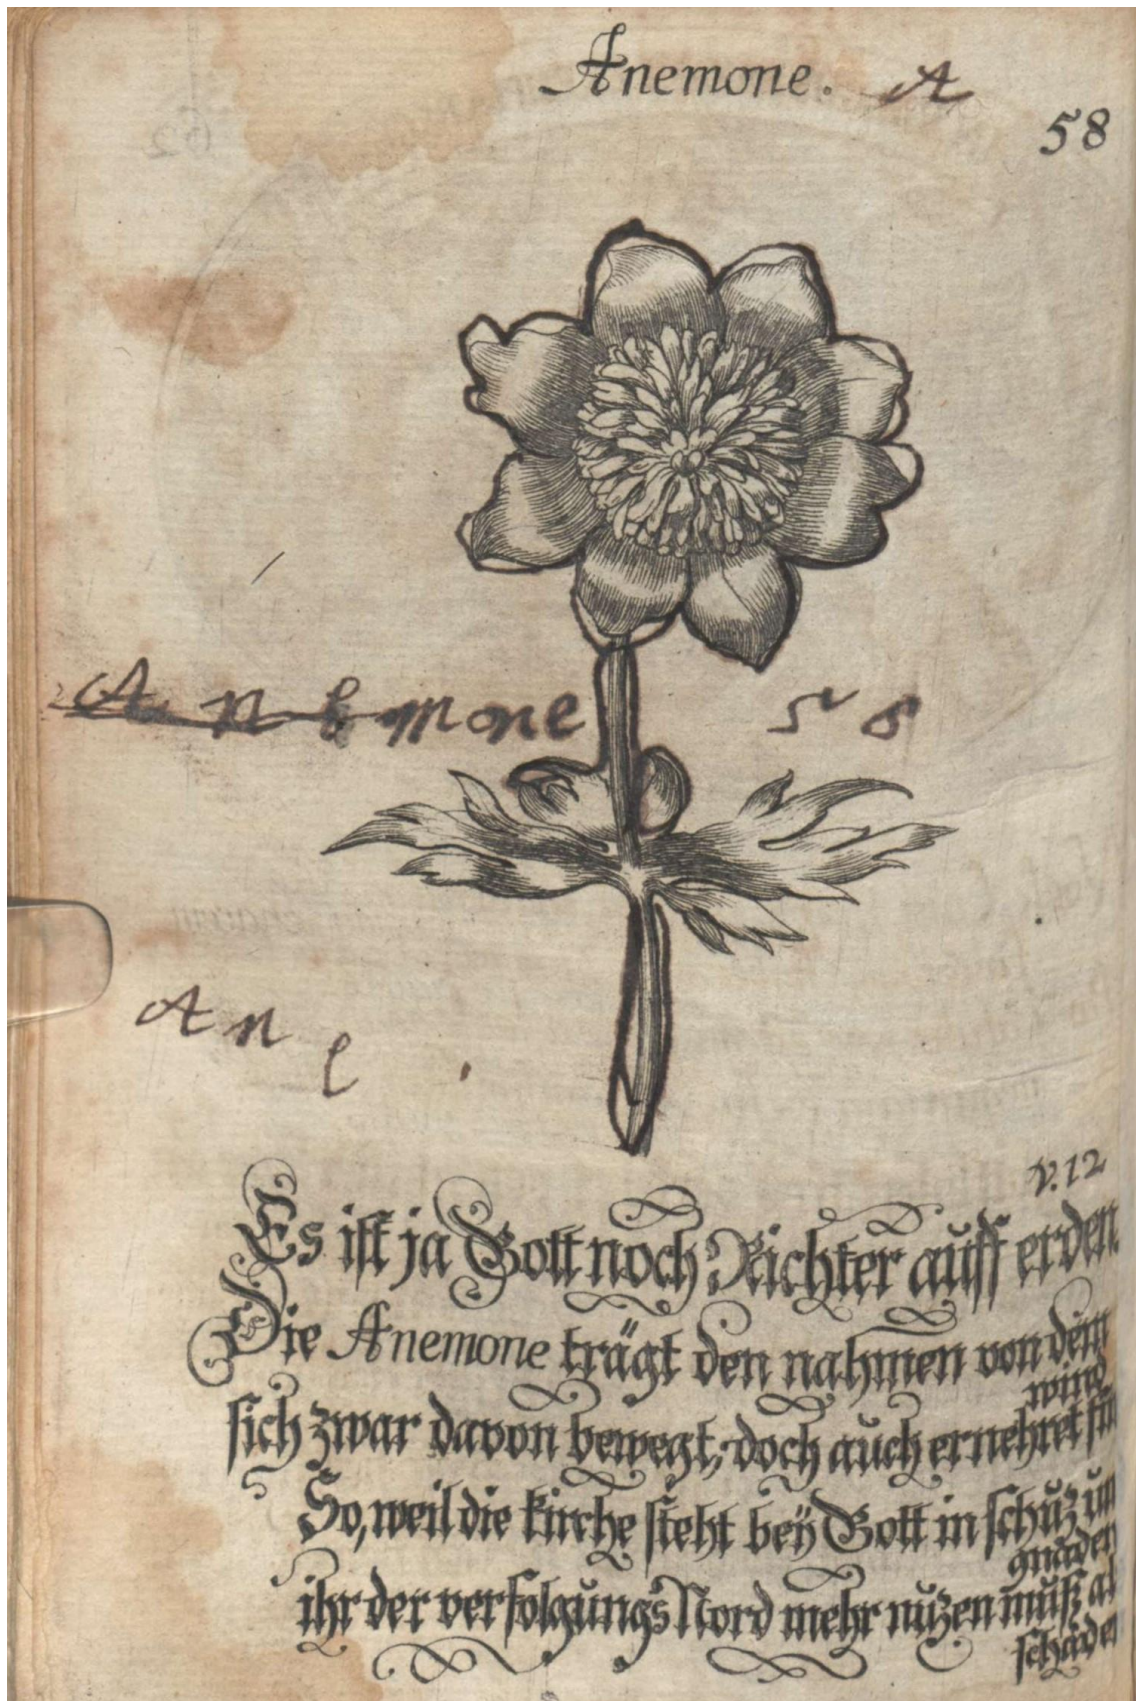 Anemone. A
58
Anemone 58
An
e
v. 12
Es ist ja Gott noch Richter auff erden.
Die Anemone trägt den nahmen von dem
wind
sich zwar davon bewegt, doch auch ernehret
So, weil die kirche steht beÿ Gott in schuz
gnaden
ihr der verfolgungs Nord mehr nuzen muß